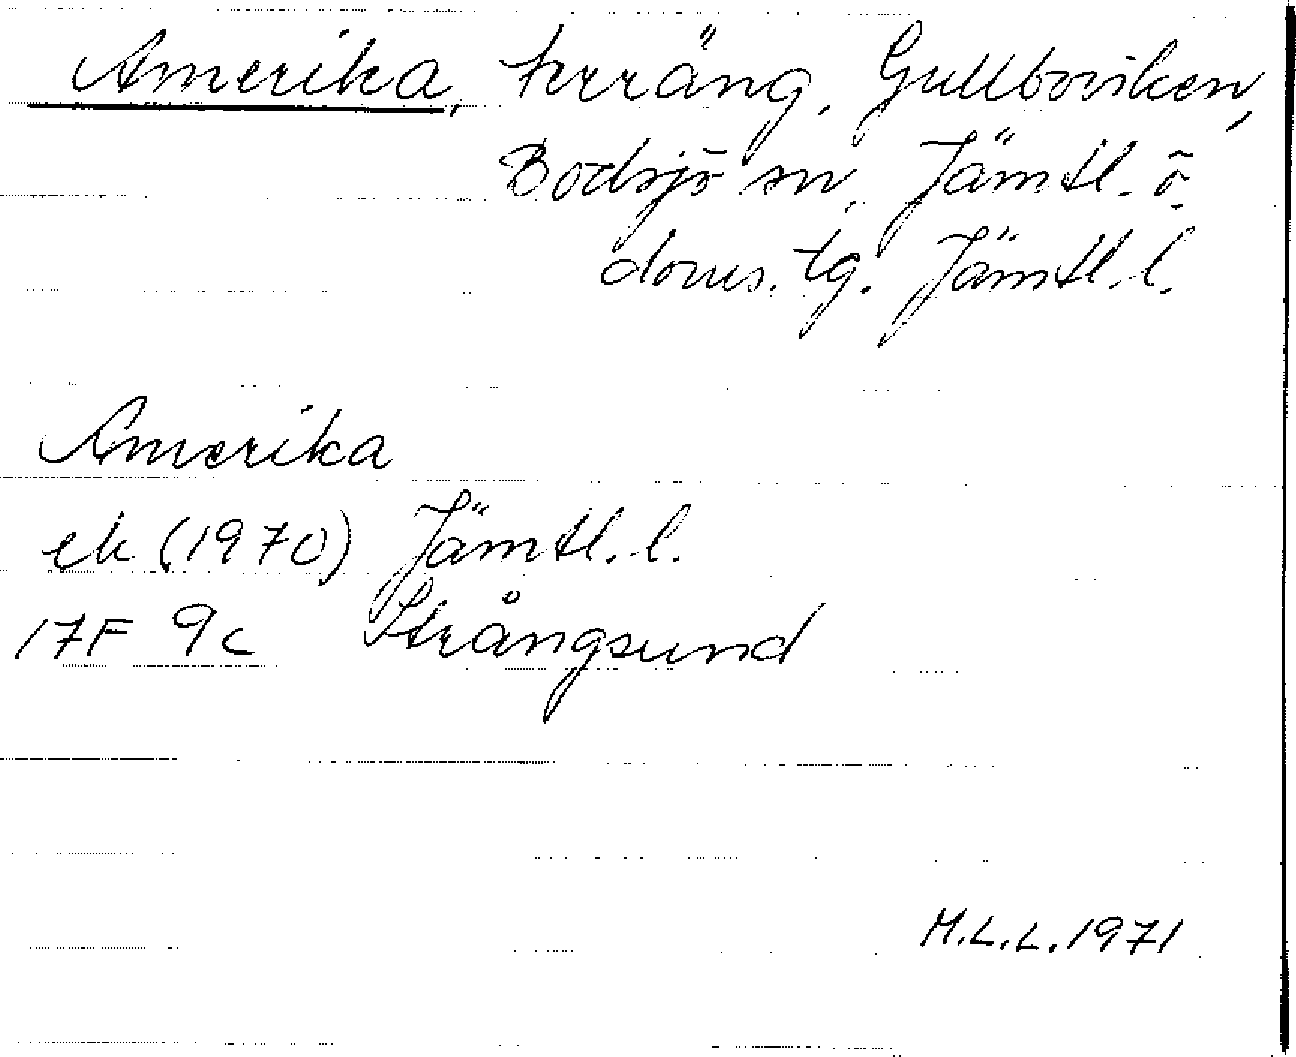 Amerika, terräng, Gullboviken,
Bodsjö sn, Jämtl. ö.
doms. tg. Jämtl. l.
Amerika
ek (1970) Jämtl. l.
17F 9c Strångsund
M.L.L. 1971